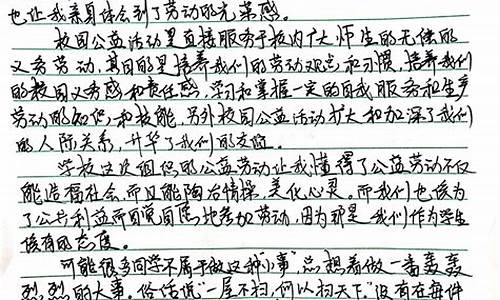 也让我亲身体会到了劳动的光荣感。
校园公益活动是直接服务于校内广大师生的无偿的
义务劳动,其目的是培养我们的劳动观点和习惯,培养我们
的校园义务感和责任感,学习和掌握一定的自我服务和生产
劳动的知识和技能,另外校园公益活动扩大和加深了我们
的人际关系,升华了我们的交际。
学校这次组织的公益劳动让我懂得了公益劳动不仅
能造福社会,而且能陶冶情操,美化心灵。而我们也该为
了公共利益而自觉自愿地参加劳动,因为那是我们作为学生
该有的态度。
可能很多同学不屑于做这种"小事"总想着做一番轰轰
烈烈的大事。俗话说"一屋不扫,何以扫天下"没有在每件